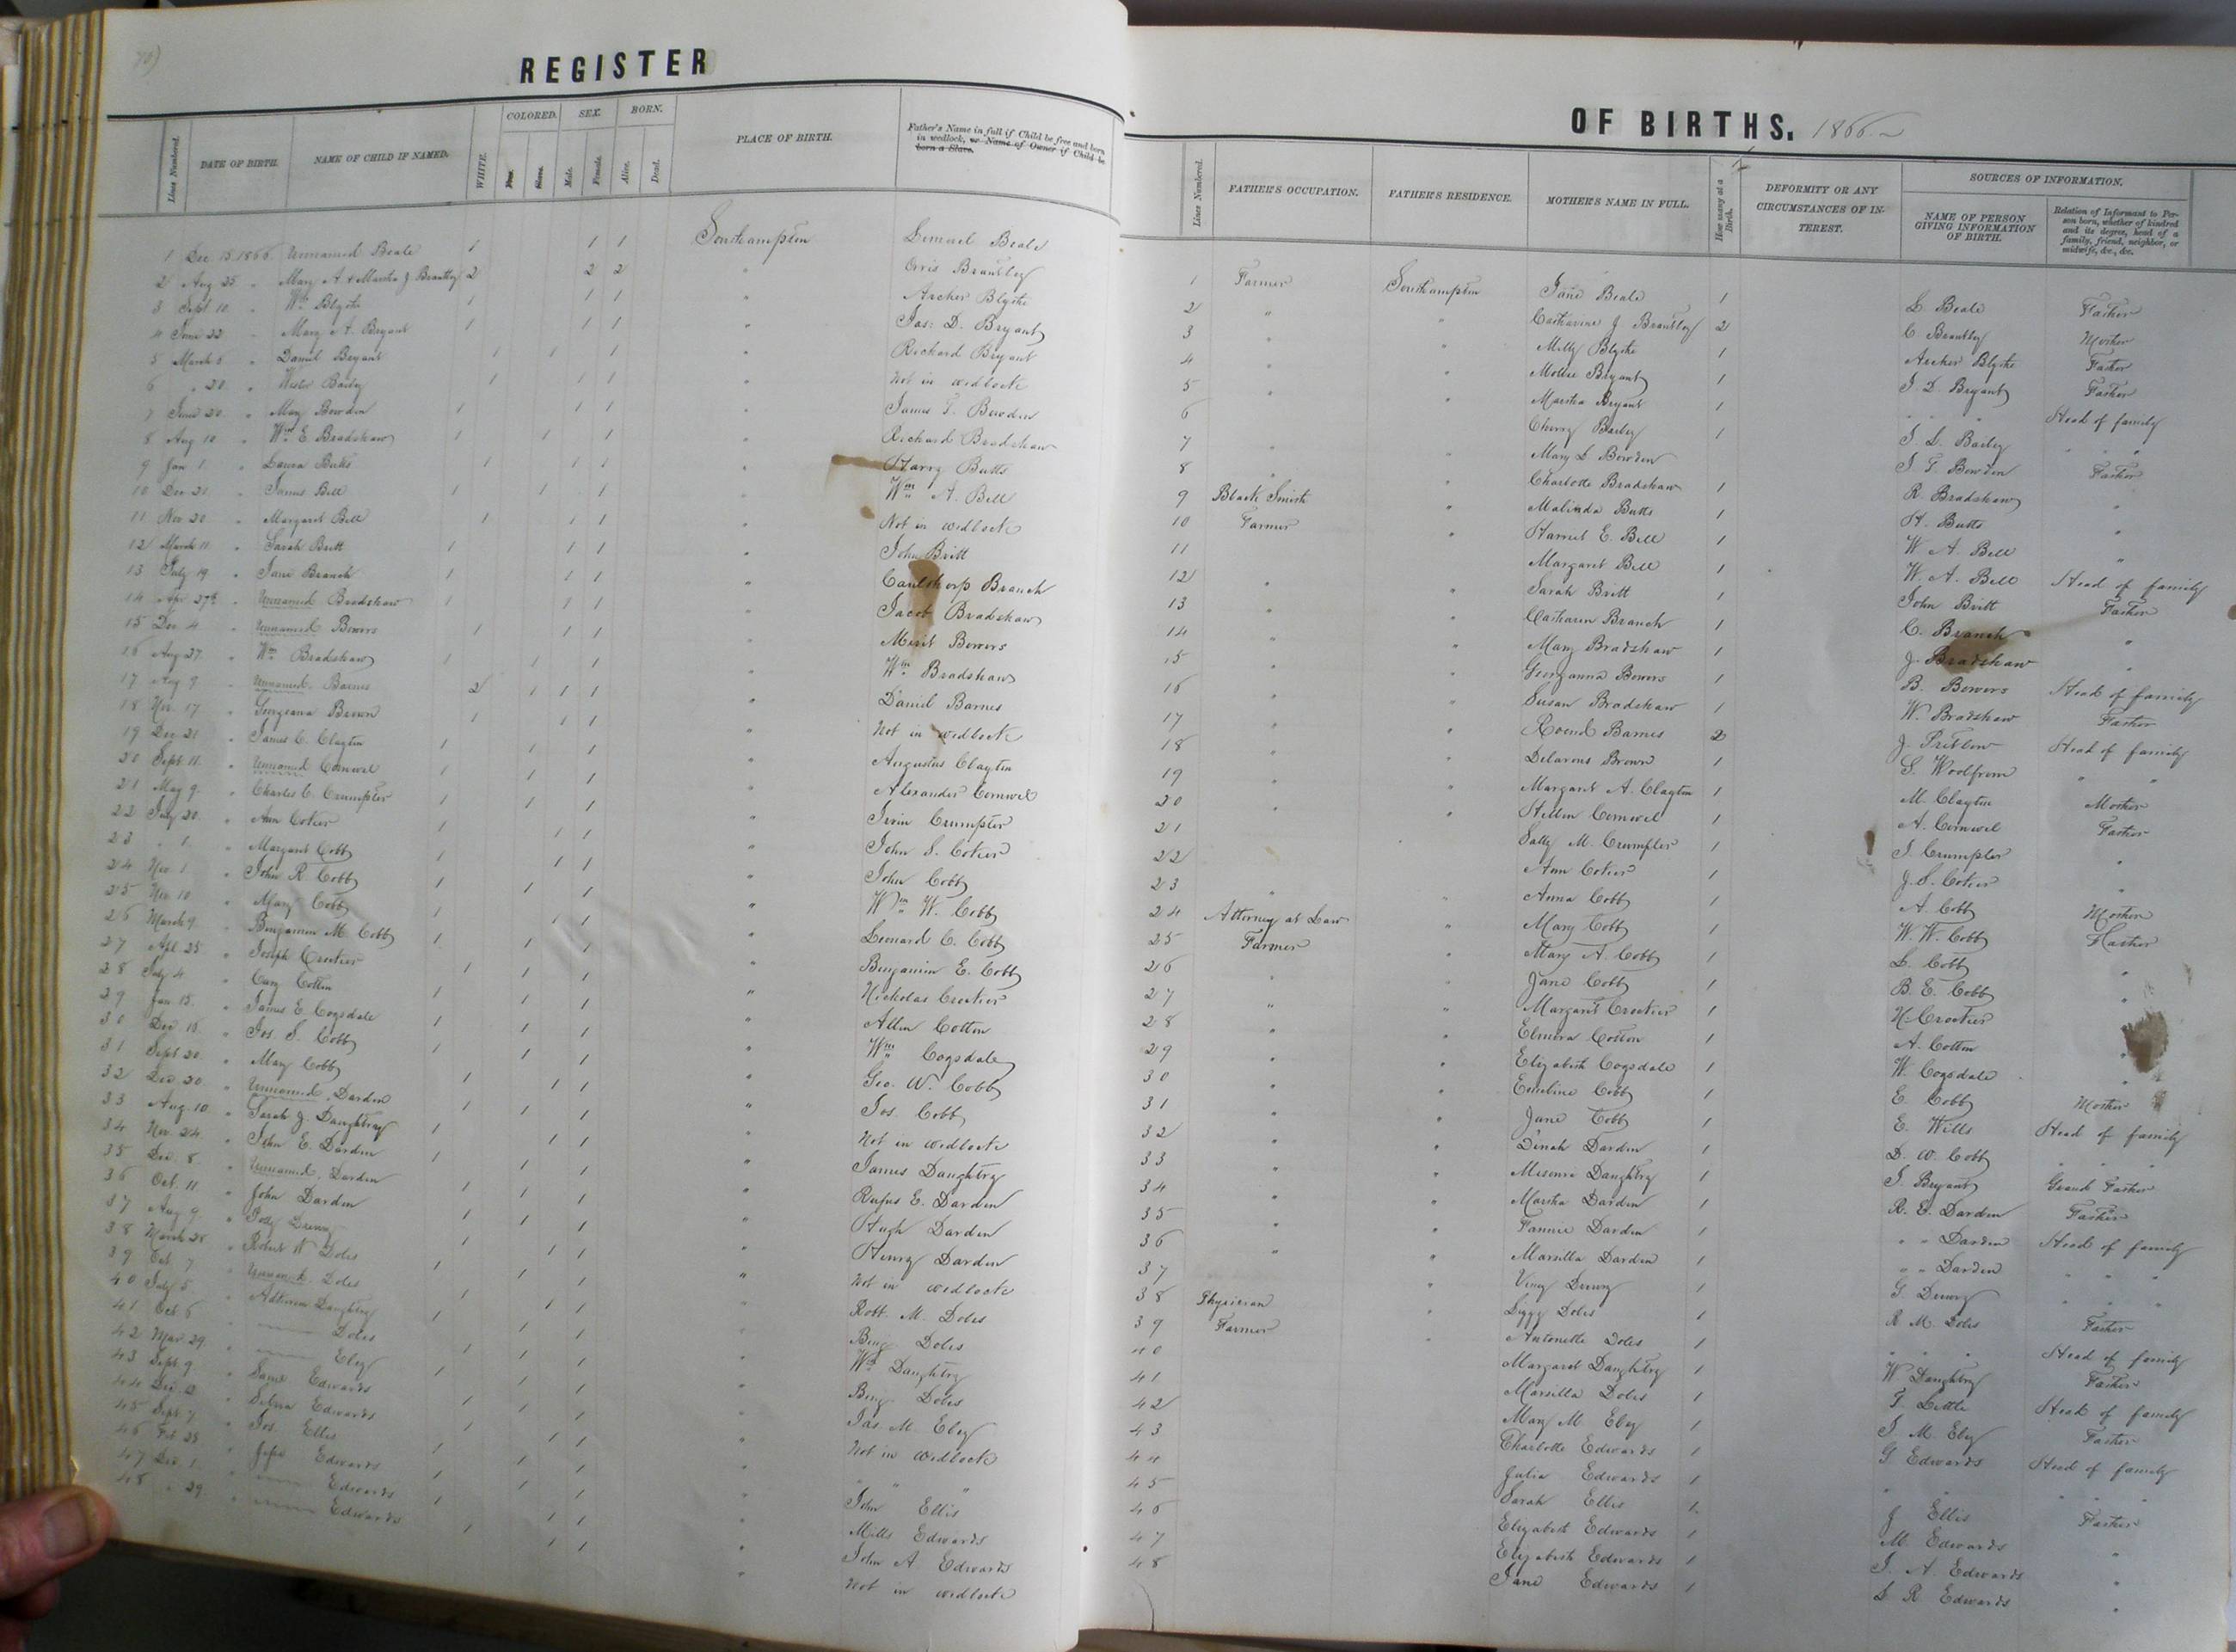 REGISTER
COLORED. SEX. BORN.
Lines Numbered. DATE OF BIRTH. NAME OF CHILD IF NAMED. WHITE. Free. Slave. Male. Female. Alive. Dead. PLACE OF BIRTH. Father's Name in full if Child be free and born in wedlock, or Name of Owner if Child be born a Slave.
1 Dec. 15. 1866. Unnamed Beale 1 1 1 Southampton Lemuel Beale
2 Aug 25 " Mary A & Martha J. Brantley 2 2 2 " Orris Brantley
3 Sept. 10 " Wm Blythe 1 1 1 " Archer Blythe
4 June 22 " Mary A. Bryant 1 1 1 " Jas: D. Bryant
5 March 6 " Daniel Bryant 1 1 1 " Richard Bryant
6 " 20 " Bailey 1 1 1 " Not in wedlock
7 June 20 " Mary Bowden 1 1 1 " James T. Bowden
8 Aug 10 " Wm E. Bradshaw 1 1 1 " Richard Bradshaw
9 Jan 1 " Laura Butts 1 1 1 " Harry Butts
10 Dec 21 " James Bell 1 1 1 " Wm A. Bell
11 Nov 20 " Margaret Bell 1 1 1 " Not in wedlock
12 March 11 " Sarah Britt 1 1 1 " John Britt
13 July 19 " Jane Branch 1 1 1 " Caulthorp Branch
14 Apr 27th " Unnamed Bradshaw 1 1 1 " Jacob Bradshaw
15 Dec 4 " Unnamed Bowers 1 1 1 " Merit Bowers
16 Aug 27 " Wm Bradshaw 1 1 1 " Wm Bradshaw
17 Aug 9 " Unnamed Barnes 2 1 1 1 " Daniel Barnes
18 Nov. 17 " Georgeana Brown 1 1 1 " Not in wedlock
19 Dec 21 " James C. Clayton 1 1 1 " Augustus Clayton
20 Sept. 11 " Unnamed Cornwel 1 1 1 " Alexander Cornwel
21 May 9 " Charles C. Crumpler 1 1 1 " Irvin Crumpler
22 July 20 " Ann Cotier 1 1 1 " John S. Cotier
23 " 1 " Margaret Cobb 1 1 1 " John Cobb
24 Nov. 1 " John R Cobb 1 1 1 " Wm W. Cobb
25 Nov 10 " Mary Cobb 1 1 1 " Leonard C. Cobb
26 March 9 " Benjamin M. Cobb 1 1 1 " Benjamin E. Cobb
27 Apl 25 " Joseph Crocker 1 1 1 " Nicholas Crocker
28 July 4 " Cary Cotton 1 1 1 " Allen Cotton
29 Jan. 15. " James E. Cogsdale 1 1 1 " Wm Cogsdale
30 Dec 15 " Jos. S. Cobb 1 1 1 " Geo. W. Cobb
31 Sept 20 " Mary Cobb 1 1 1 " Jos. Cobb
32 Dec. 20 " Unnamed. Darden 1 1 1 " Not in wedlock
33 Aug. 10 " Sarah J. Daughtrey 1 1 1 " James Daughtry
34 Nov. 24 " John E. Darden 1 1 1 " Rufus E. Darden
35 Dec. 8 " Unnamed. Darden 1 1 1 " Hugh Darden
36 Oct. 11 " John Darden 1 1 1 " Henry Darden
37 Aug 9 " Polly Drewry 1 1 1 " Not in wedlock
38 March 28 " Robert W Doles 1 1 1 " Robt. M. Doles
39 Oct 7 " Doles 1 1 1 " Benj Doles
40 July 5 " Daughtry 1 1 1 " Wm Daughtry
41 Oct 6 " Doles 1 1 1 " Benj Doles
42 Mar 29 " Eley 1 1 1 " Jas. M. Eley
43 Sept. 9 " Edwards 1 1 1 " Not in wedlock
44 Dec " Edwards 1 1 1 " " " "
45 Sept. 7 " Jos. Ellis 1 1 1 " John Ellis
46 " Edwards 1 1 1 " Mills Edwards
47 Dec. 1 " Edwards 1 1 1 " John A. Edwards
48 " 29 " Edwards 1 1 1 " Not in wedlock
OF BIRTHS. 1866
SOURCES OF INFORMATION.
Lines Numbered. FATHER'S OCCUPATION. FATHER'S RESIDENCE. MOTHER'S NAME IN FULL. How many at a Birth. DEFORMITY OR ANY CIRCUMSTANCES OF INTEREST. NAME OF PERSON GIVING INFORMATION OF BIRTH. Relation of Informant to Person born, whether of kindred and its degree, head of a family, friend, neighbor, or midwife, &c., &c.
1 Farmer Southampton Jane Beale 1 L. Beale Father
2 " " Catharine J. Brantley 2 C Brantley Mother
3 " " Milly Blythe 1 Archer Blythe Father
4 " " Mollie Bryant 1 J. D. Bryant Father
5 " " Martha Bryant 1 " " " Head of family
6 Cherry Bailey 1 J. L. Bailey " "
7 " " Mary L Bowden 1 J T. Bowden Father
8 " " Charlotte Bradshaw 1 R. Bradshaw "
9 Black Smith " Malinda Butts 1 H. Butts "
10 Farmer " Harriet E. Bell 1 W A. Bell "
11 Margaret Bell 1 W. A. Bell Head of family
12 " " Sarah Britt 1 John Britt Father
13 " " Catharin Branch 1 C. Branch "
14 " " Mary Bradshaw 1 J. Bradshaw "
15 " " Georganna Bowers 1 B. Bowers Head of family
16 " " Susan Bradshaw 1 W. Bradshaw Father
17 " " Barnes 2 J. Pretlow Head of family
18 " " Brown 1 S. Woolfrom " "
19 " " Margaret A. Clayton 1 M. Clayton Mother
20 " " Cornwel 1 A. Cornwel Father
21 Sally M. Crumpler 1 J Crumpler "
22 Ann Cotier 1 J. S. Cotier "
23 " " Anna Cobb 1 A. Cobb Mother
24 Attorney at Law " Mary Cobb 1 W. W. Cobb Father
25 Farmer " Mary A. Cobb 1 L. Cobb "
26 " " Jane Cobb 1 B. E. Cobb "
27 " " Margaret Crocker 1 N. Crocker
28 " " Elmira Cotton 1 A. Cotton "
29 " " Elizabeth Cogsdale 1 W. Cogsdale "
30 " " Emeline Cobb 1 E. Cobb Mother
31 " " Jane Cobb 1 E. Wills Head of family
32 " " Dinah Darden 1 D. W. Cobb " "
33 " " Missouri Daughtry 1 J. Bryant Grand Father
34 " " Martha Darden 1 R. E. Darden Father
35 " " Fannie Darden 1 " " Darden Head of family
36 " " Marsilla Darden 1 " " Darden " "
37 " Viney Drewry 1 G. Drewry " "
38 Physician " Liggy Doles 1 R M. Doles Father
39 Farmer " Antonette Doles 1 " " " Head of family
40 Margaret Daughtry 1 W Daughtry Father
41 Marsilla Doles 1 T. Little Head of family
42 Mary M. Eley 1 J. M. Eley Father
43 Charlotte Edwards 1 G Edwards Head of family
44 Julia Edwards 1 " " "
45 Sarah Ellis 1 J Ellis Father
46 Elizabeth Edwards 1 M. Edwards "
47 Elizabeth Edwards 1 J. A. Edwards "
48 Jane Edwards 1 L R. Edwards "